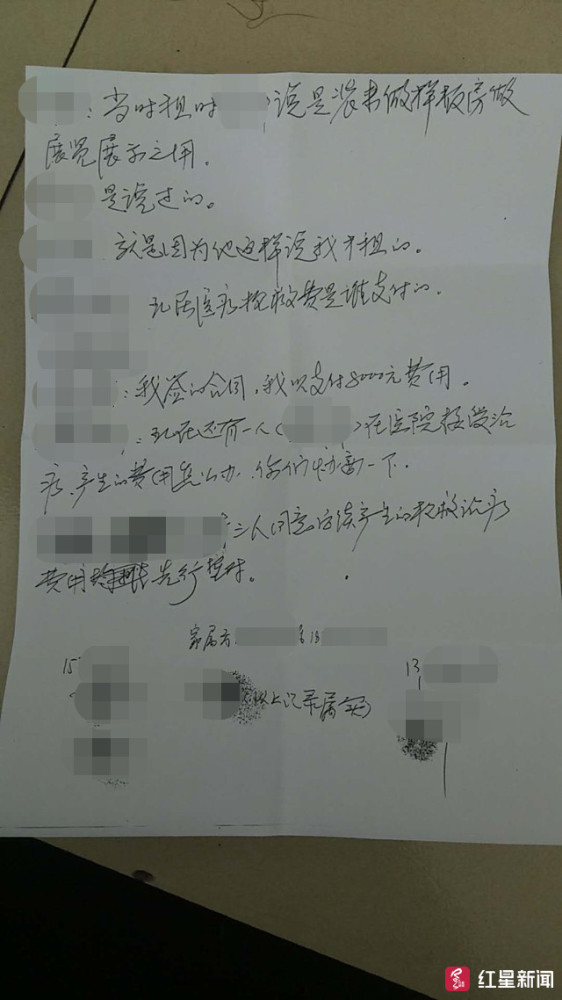 ：当时租时 说是装书做样板房做
展览展示之用。
是说过的。
就是因为他这样说我才租的。
现在医疗抢救费是谁支付的。
：我签的合同，我只支付8000元费用。
：现在还有一人( )在医院接受治
疗，产生的费用怎么办，你们协商一下。
三人同意后续产生的抢救治疗
费用 先行垫付。
家属方
15
以上记录属实
13
红星新闻